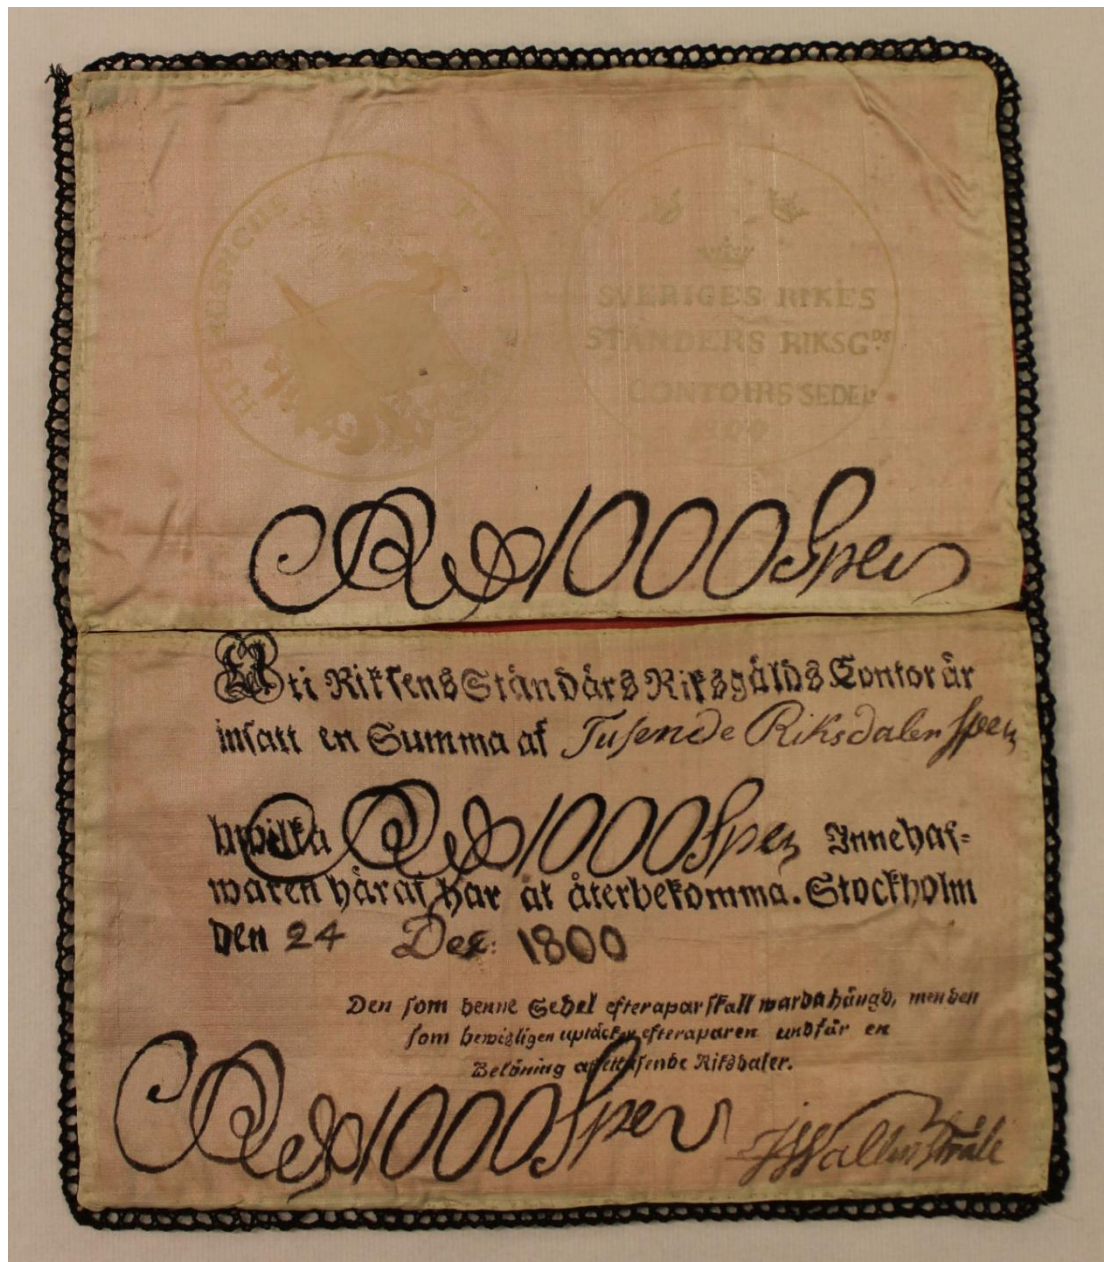 HIS AUSPICIIS
SVERIGES RIKES
STÄNDERS RIKSG.DS
CONTOIRS SEDEL
1000 Spec
Uti Riksens Ständärs Riksgälds Contor är
insatt en Summa af Tusende Riksdaler Spec
hwilka 1000 Spec Innehaf-
waren häraf har at återbekomma. Stockholm
den 24 Dec: 1800
Den som denne Sedel efterapar skall warda hängd, men den
som bewisligen uptäcker efteraparen undfår en
Belöning af ett tusende Riksdaler.
1000 Spec